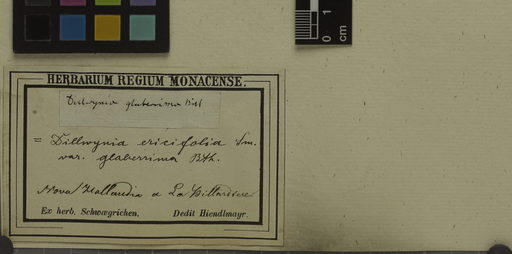 0 1
cm
HERBARIUM REGIUM MONACENSE.
Dillwynia glaberrima
= Dillwynia ericifolia Sm.
var. glaberrima Bth.
Nova Hollandia a La Billardiere
Ex herb. Schwægrichen. Dedit Hiendlmayr.